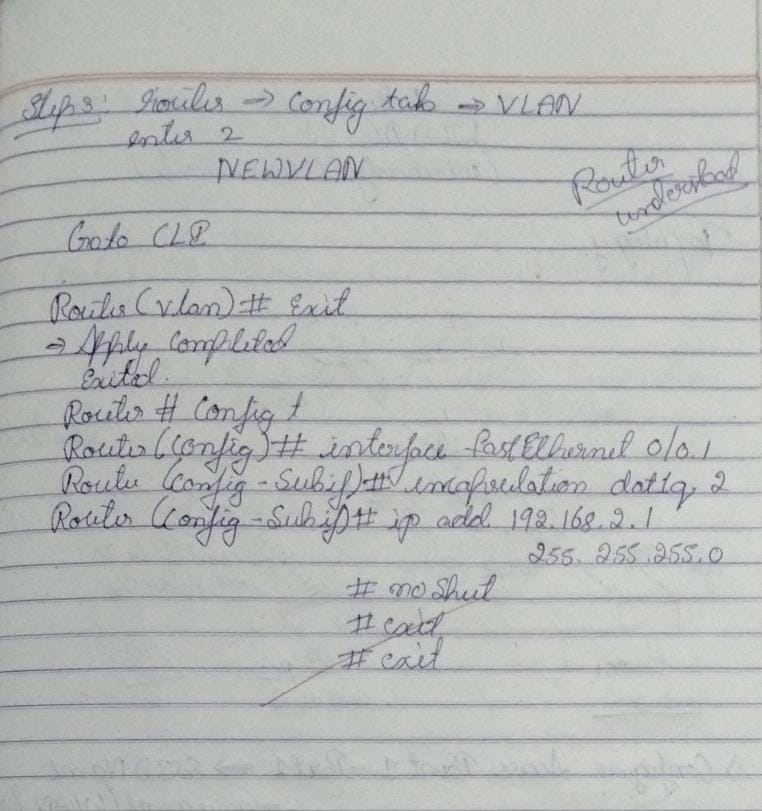 Step 3: Router → Config tab → VLAN
enter 2
NEWVLAN
Router
understood
Goto CLI
Router(vlan)# Exit
→ Apply Completed
Exited.
Router # Config t
Router(Config)# interface fastEthernet 0/0.1
Router (Config-Subif)# encapsulation dot1q 2
Router (Config-Subif)# ip add 192.168.2.1
255.255.255.0
# no Shut
# exit
# exit